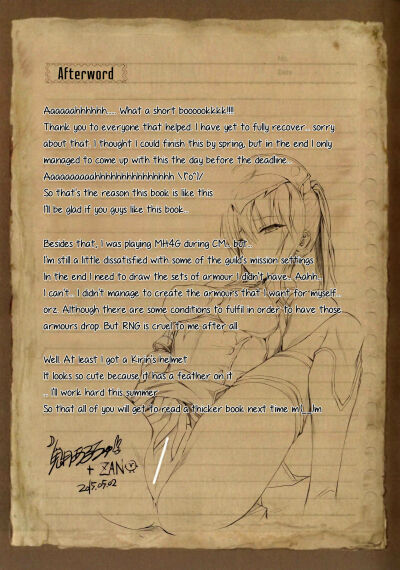 No.
Date
Afterword
Aaaaaahhhhhh..... What a short boooookkkk!!!!
Thank you to everyone that helped. I have yet to fully recover... sorry
about that. I thought I could finish this by spring, but in the end I only
managed to come up with this the day before the deadline...
Aaaaaaaaahhhhhhhhhhhhhhhh \(^o^)/
So that's the reason this book is like this
I'll be glad if you guys like this book...
Besides that, I was playing MH4G during CM... but...
I'm still a little dissatisfied with some of the guild's mission settings
In the end I need to draw the sets of armour I didn't have... Aahh...
I can't... I didn't manage to create the armours that I want for myself...
orz. Although there are some conditions to fulfil in order to have those
armours drop. But RNG is cruel to me after all
Well. At least I got a Kirin's helmet
It looks so cute because it has a feather on it
... I'll work hard this summer
So that all of you will get to read a thicker book next time m(_ _)m
+ ZAN
2015.05.02